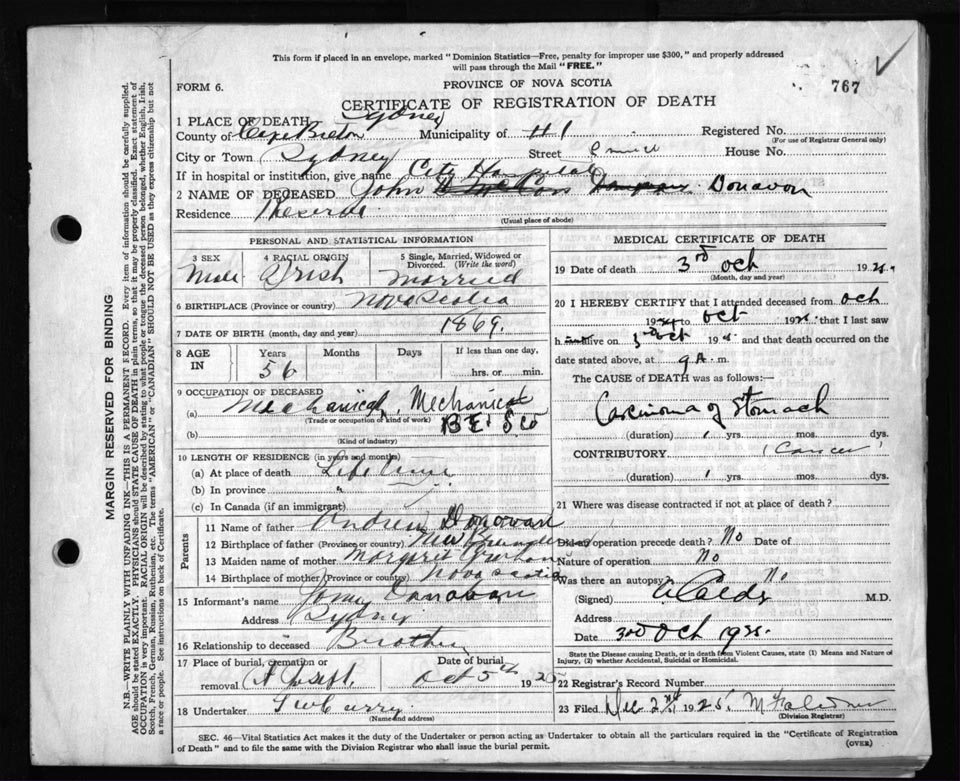 This form if placed in an envelope, marked "Dominion Statistics—Free, penalty for improper use $300," and properly addressed
will pass through the Mail "FREE."
FORM 6.
PROVINCE OF NOVA SCOTIA
767
CERTIFICATE OF REGISTRATION OF DEATH
1 PLACE OF DEATH Sydney
County of Cape Breton Municipality of Registered No.
(For use of Registrar General only)
City or Town Sydney Street House No.
If in hospital or institution, give name City Hospital
2 NAME OF DECEASED John Donavon
Residence Reserve
(Usual place of abode)
PERSONAL AND STATISTICAL INFORMATION
3 SEX Male
4 RACIAL ORIGIN Irish
5 Single, Married, Widowed or
Divorced. (Write the word)
Married
6 BIRTHPLACE (Province or country) Nova Scotia
7 DATE OF BIRTH (month, day and year) 1869.
8 AGE IN Years 56 Months Days If less than one day,
hrs. or min.
9 OCCUPATION OF DECEASED
(a) Mechanical, Mechanical
(Trade or occupation or kind of work)
(b)
(Kind of industry)
10 LENGTH OF RESIDENCE (in years and months)
(a) At place of death Life time
(b) In province "
(c) In Canada (if an immigrant)
Parents
11 Name of father Andrew Donovan
12 Birthplace of father (Province or country)
13 Maiden name of mother Margret
14 Birthplace of mother (Province or country) Nova Scotia
15 Informant's name Donovan
Address Sydney
16 Relationship to deceased Brother
17 Place of burial, cremation or
removal St Joseph. Date of burial Oct 5th 1925
18 Undertaker Curry
(Name and address)
MEDICAL CERTIFICATE OF DEATH
19 Date of death 3rd Oct 192
(Month, day and year)
20 I HEREBY CERTIFY that I attended deceased from Oct
19 to Oct 192 that I last saw
h alive on 3rd Oct 19 and that death occurred on the
date stated above, at 9 A. m.
The CAUSE of DEATH was as follows:—
Carcinoma of Stomach
(duration) 1 yrs. mos. dys.
CONTRIBUTORY (Cancer)
(duration) yrs. mos. dys.
21 Where was disease contracted if not at place of death?
Did an operation precede death? No Date of
Nature of operation No
Was there an autopsy No
(Signed) M.D.
Address
Date 3rd Oct 192
State the Disease causing Death, or in death from Violent Causes, state (1) Means and Nature of
Injury, (2) whether Accidental, Suicidal or Homicidal.
22 Registrar's Record Number
23 Filed Dec 1925
(Division Registrar)
SEC. 46—Vital Statistics Act makes it the duty of the Undertaker or person acting as Undertaker to obtain all the particulars required in the "Certificate of Registration
of Death" and to file the same with the Division Registrar who shall issue the burial permit.
(OVER)
MARGIN RESERVED FOR BINDING
N.B.—WRITE PLAINLY WITH UNFADING INK—THIS IS A PERMANENT RECORD. Every item of information should be carefully supplied.
AGE should be stated EXACTLY. PHYSICIANS should STATE CAUSE OF DEATH in plain terms, so that it may be properly classified. Exact statement of
OCCUPATION is very important. RACIAL ORIGIN will be described by stating to what people or race the deceased person belonged, whether English, Irish,
Scotch, French, German, Russian, Ruthenian, etc. The terms "AMERICAN" or "CANADIAN" SHOULD NOT BE USED as they express citizenship but not
a race or people. See instructions on back of Certificate.